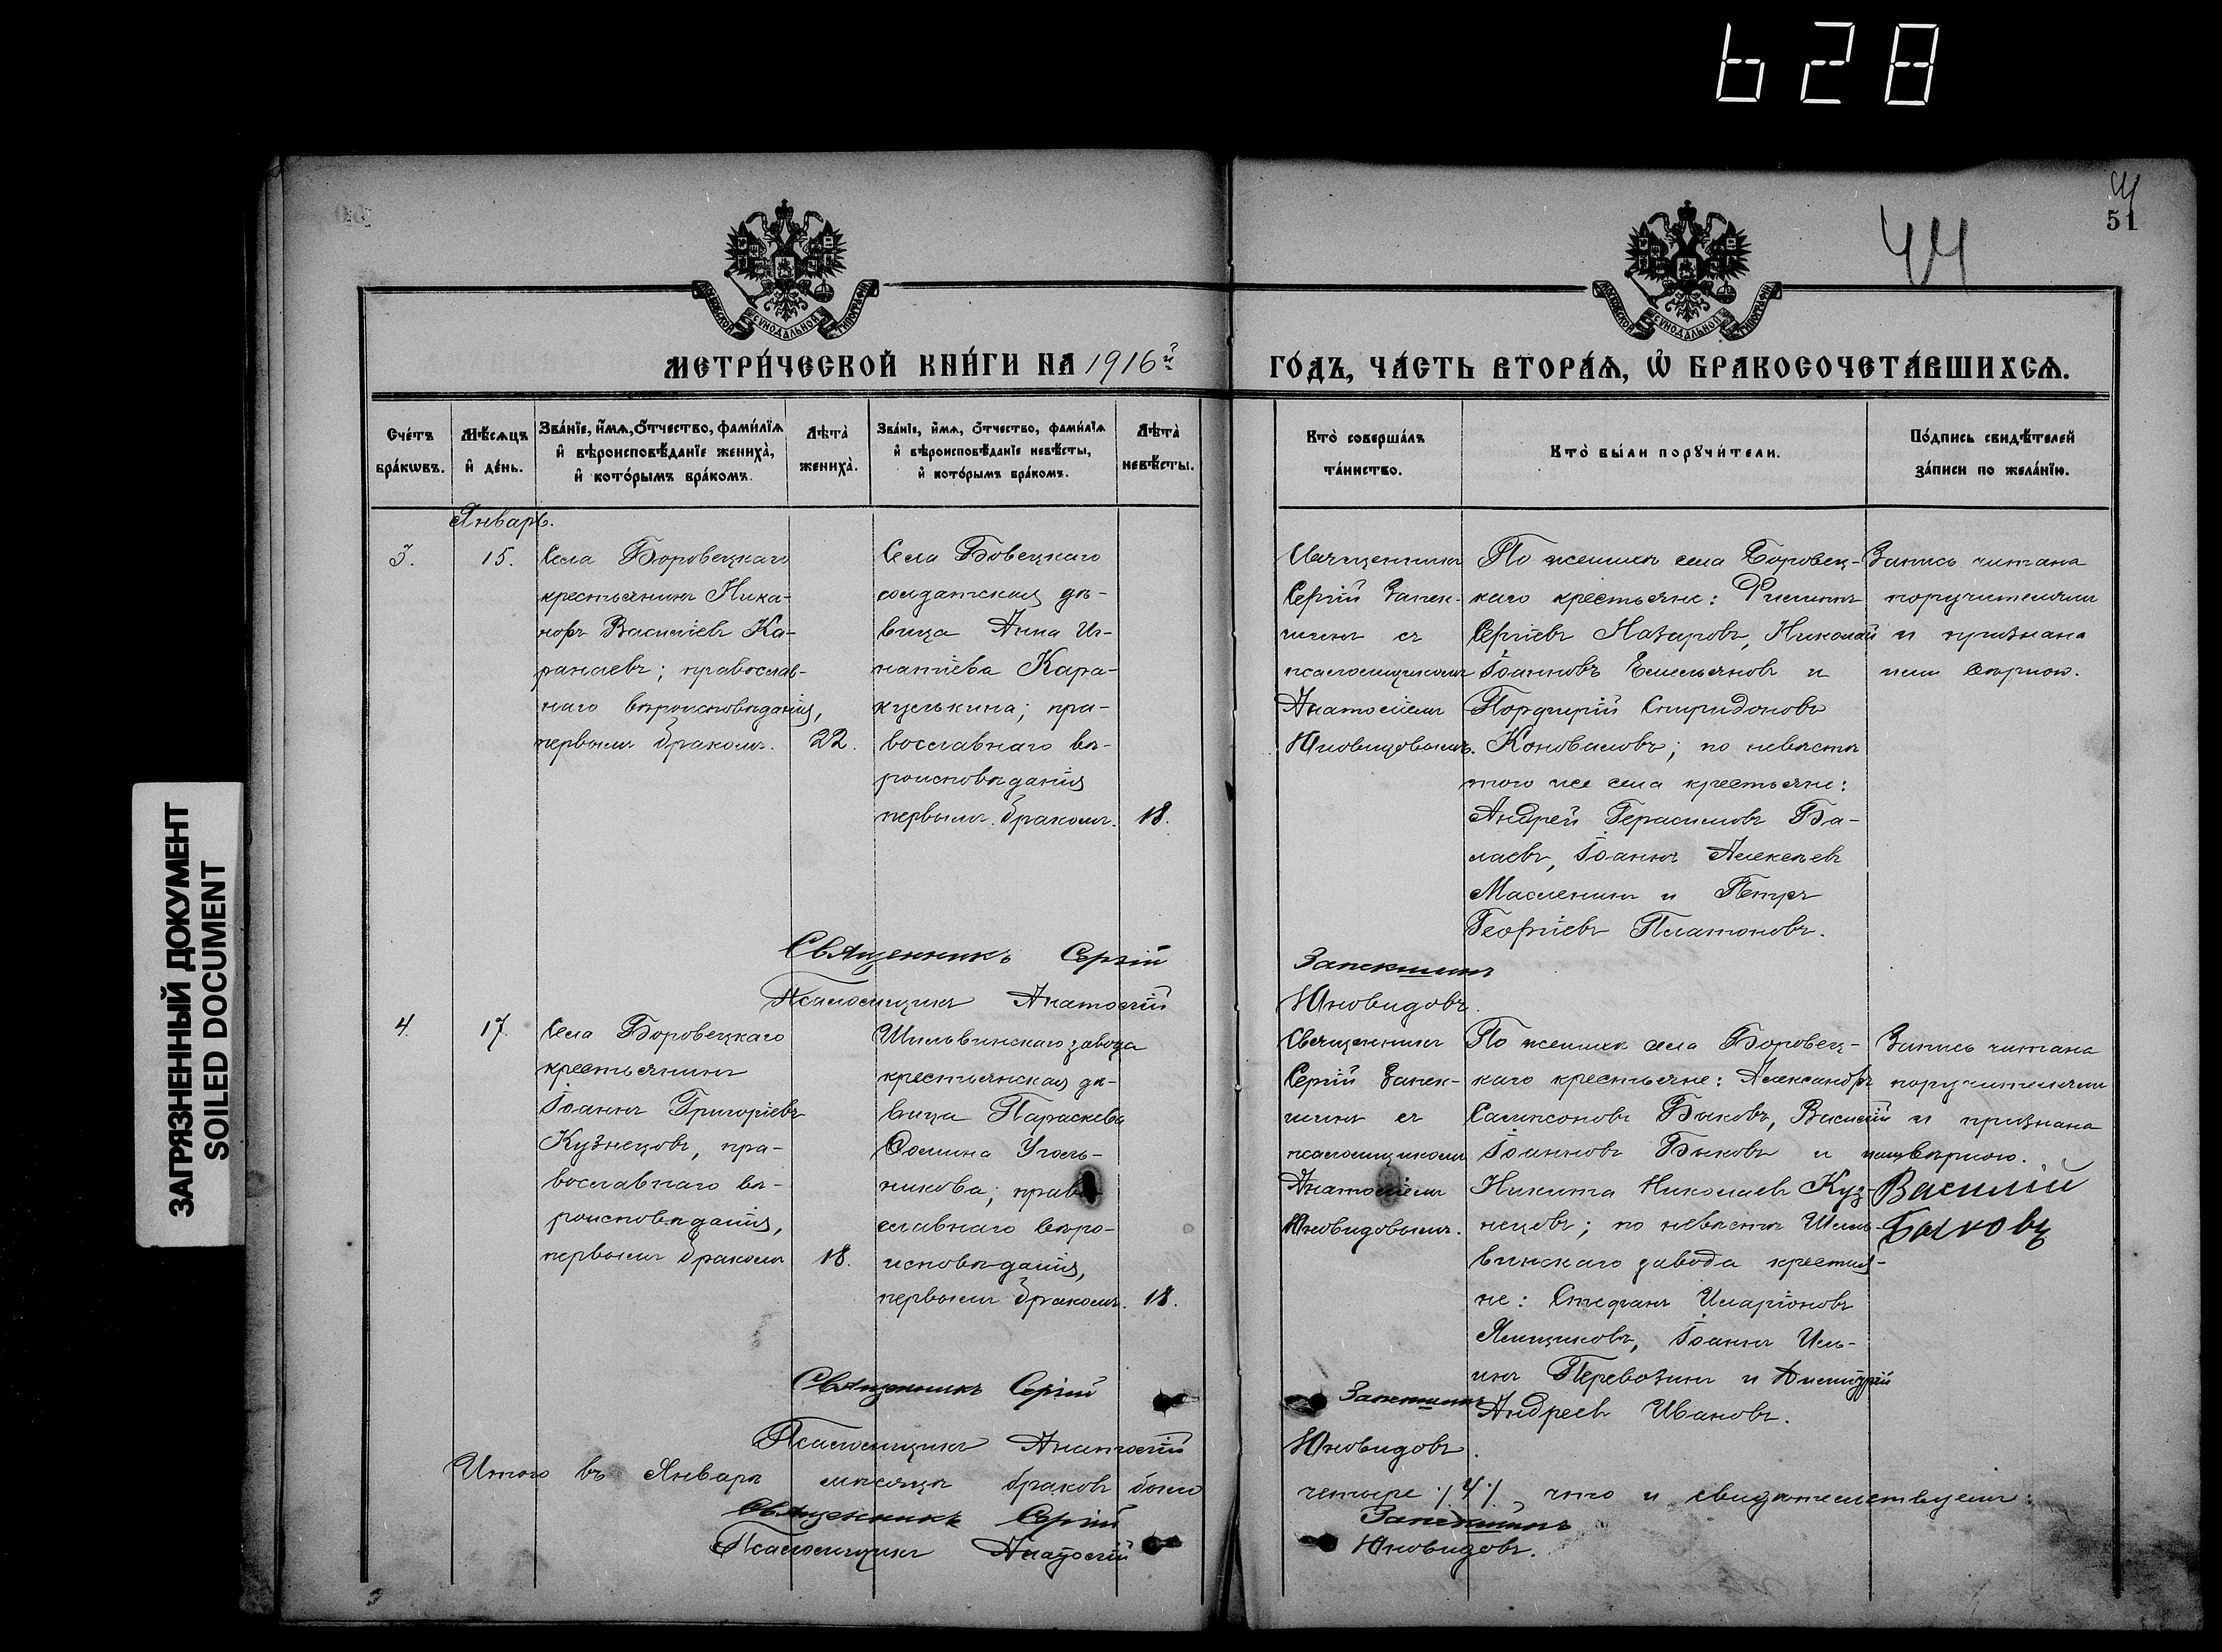 628
44
51
ЗАГРЯЗНЕННЫЙ ДОКУМЕНТ
SOILED DOCUMENT
МОСКОВСКОЙ СѴНОДАЛЬНОЙ ТИПОГРАФІИ
МОСКОВСКОЙ СѴНОДАЛЬНОЙ ТИПОГРАФІИ
МЕТРИ́ЧЕСКОЙ КНИ́ГИ НА 1916й
ГО́ДЪ, ЧА́СТЬ ВТОРА́Ѧ, Ѡ҆ БРАКОСОЧЕТА́ВШИХСѦ.
Сче́тъ бра́кѡвъ.
Мѣ́сѧцъ и҆ де́нь.
Зва́нїе, и҆́мѧ, ѻ҆́тчество, фами́лїѧ
и҆ вѣроисповѣ́данїе жениха̀,
и҆ кото́рымъ бра́комъ.
Лѣта̀ жениха̀.
Зва́нїе, и҆́мѧ, ѻ҆́тчество, фами́лїѧ
и҆ вѣроисповѣ́данїе невѣ́сты,
и҆ кото́рымъ бра́комъ.
Лѣта̀ невѣ́сты.
Кто̀ соверша́лъ
та́инство.
Кто̀ бы́ли порꙋчи́тели.
По́дпись свидѣ́телей
за́писи по жела́нїю.
Январь.
3.
15.
Села Боровецкаго
крестьянинъ Ника-
норъ Василіевъ Ка-
ранаевъ; православ-
наго вѣроисповѣданія,
первымъ бракомъ.
22.
Села Бовецкаго
солдатская дѣ-
вица Анна Иг-
натіева Кара-
кулькина; пра-
вославнаго вѣ-
роисповѣданія
первымъ бракомъ.
18.
Священникъ
Сергій Запек-
шинъ съ
псаломщикомъ
Анатоліемъ
Юновидовымъ.
По женихѣ села Боровец-
каго крестьяне: Филиппъ
Сергіевъ Назаровъ, Николай
Іоанновъ Емельяновъ и
Порфирій Спиридоновъ
Коноваловъ; по невѣстѣ
того же села крестьяне:
Андрей Герасимовъ Ба-
лаевъ, Іоаннъ Алексѣевъ
Масленинъ и Петръ
Георгіевъ Платоновъ.
Запись читана
поручителями
и признана
ими вѣрною.
Священникъ Сергій Запекшинъ
Псаломщикъ Анатолій Юновидовъ.
4.
17.
Села Боровецкаго
крестьянинъ
Іоаннъ Григоріевъ
Кузнецовъ, пра-
вославнаго вѣ-
роисповѣданія,
первымъ бракомъ
18.
Шильвинскаго завода
крестьянская дѣ-
вица Параскева
Ѳомина Уголь-
никова; право-
славнаго вѣро-
исповѣданія,
первымъ бракомъ.
18.
Священникъ
Сергій Запек-
шинъ съ
псаломщикомъ
Анатоліемъ
Юновидовымъ.
По женихѣ села Боровец-
каго крестьяне: Александръ
Сампсоновъ Быковъ, Василій
Іоанновъ Быковъ и
Никита Николаевъ Куз-
нецовъ; по невѣстѣ Шиль-
винскаго завода крестья-
не: Стефанъ Иларіоновъ
Ямщиковъ, Іоаннъ Иль-
инъ Перевозинъ и Димитрій
Андреевъ Ивановъ.
Запись читана
поручителями
и признана
ими вѣрною.
Василій
Быковъ
Священникъ Сергій Запекшинъ
Псаломщикъ Анатолій Юновидовъ.
Итого въ Январѣ мѣсяцѣ браковъ было четыре /4/ что и свидѣтельствуемъ:
Священникъ Сергій Запекшинъ
Псаломщикъ Анатолій Юновидовъ.